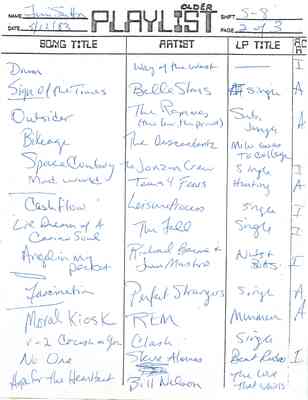 OLDER
NAME Jim Sutton PLAYLIST SHIFT 5-8
DATE 5/12/83 PAGE 2 of 3
SONG TITLE ARTIST LP TITLE
Drums Way of the West I
Sign of the Times Belle Stars Single A
Outsider The Ramones Sub. Jungle
Bikeage The Descendents Milo Goes to College
Space Cowboy The Jonzun Crew Single I
Mad World Tears 4 Fears Hurting A
Cash Flow Leisure Process Single I
Live Dream of A Casino Soul The Fall Single I
Angel in my pocket Richard Barone & James Mastro Nuts & Bolts I
Fascination Perfect Strangers Single A
Moral Kiosk REM Murmur A
1-2 Crush on You Clash Single
No One Steve Almaas Beat Rodeo I
Hope for the Heartbeat Bill Nelson The Love that Whirls